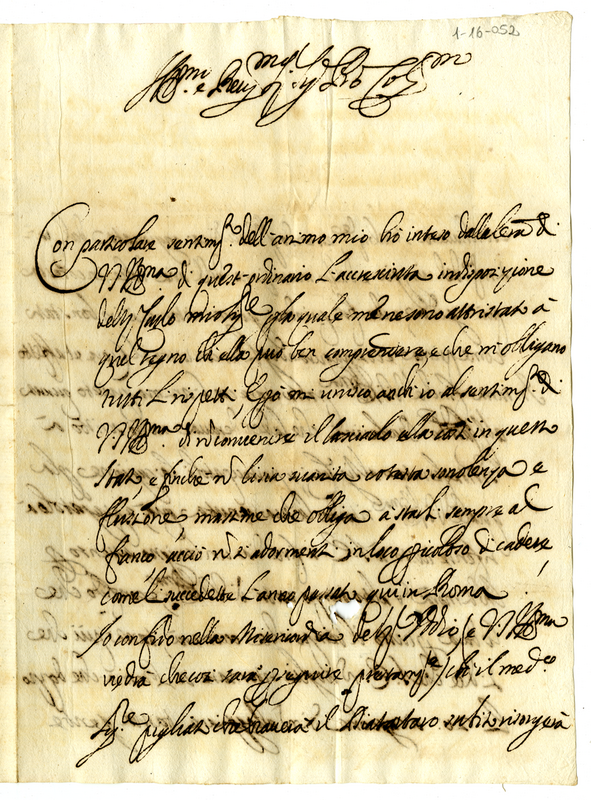 1-16-052
Ill.mi e Rev.mo Sig.re
Con particolare sentim.to dell'animo mio hò inteso dalla lettera di
V.S. Ill.ma di quest'ordinario l'accresciuta indisposizione
del Sig. Carlo mio Sig.re per la quale me ne sono attristato à
quel segno ch'ella può ben comprendere, e che mi obligano
tutti i rispetti, e però mi unisco anch'io al sentim.to di
V.S. Ill.ma di nõ convenire il lasciarlo ella così in questo
stato, e finche nõ li sia suanita cotesta sonolenza e
flussione, massime che obliga a starli sempre al
fianco acciò nõ s'adormenti in loco pericoloso di cadere
come li succedette l'anno passato qui in Roma
Io confido nella Misericordia del Sig. Iddio, e V.S. Ill.ma
vedrà che così sarà per seguire prestam.te, che il med.o
Sig.re pigliato che haverà il subito risorgerà